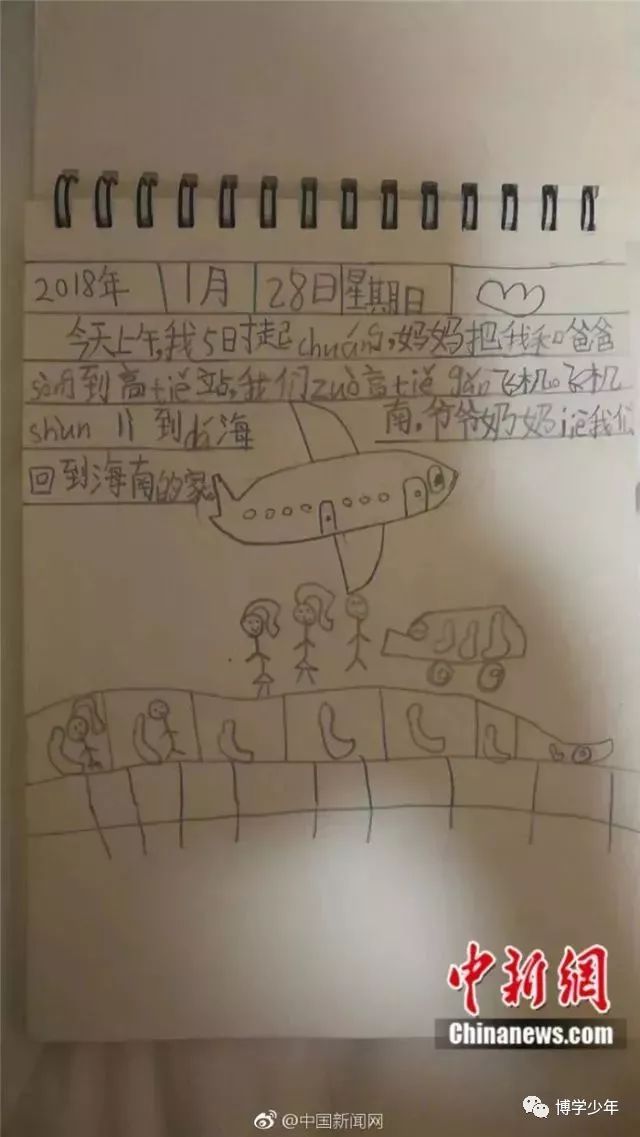 2018年 1月 28日 星期日
今天上午,我5时起chuáng,妈妈把我和爸爸
sòng到高tiě站,我们zuò高tiě gǎn飞机。飞机
shùn lì到dá海南,爷爷奶奶jiē我们
回到海南的家。
中新网
Chinanews.com
@中国新闻网
博学少年